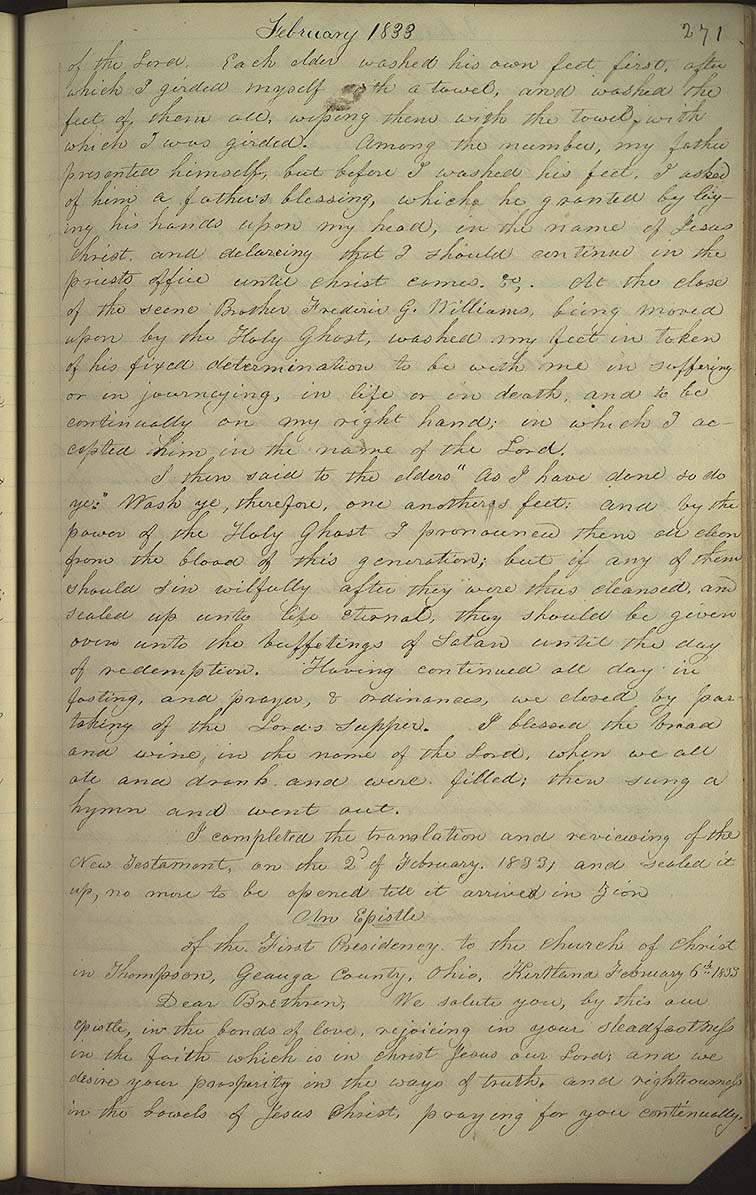 February 1833 271
of the Lord. Each elder washed his own feet first, after
which I girded myself with a towel, and washed the
feet of them all, wiping them with the towel, with
which I was girded. Among the number, my father
presented himself, but before I washed his feet, I asked
of him a father's blessing, which he granted by lay-
ing his hands upon my head, in the name of Jesus
Christ, and delareing that I should continue in the
priests office until Christ comes. &c,. At the close
of the scene Brother Frederic G. Williams, being moved
upon by the Holy Ghost, washed my feet in token
of his fixed determination to be with me in suffering
or in journeying, in life or in death, and to be
continually on my right hand; in which I ac-
cepted him in the name of the Lord.
I then said to the elders "As I have done so do
ye:" Wash ye, therefore, one another,s feet: and by the
power of the Holy Ghost I pronounced them all clean
from the blood of this generation; but if any of them
should sin wilfully after they were thus cleansed, and
sealed up unto life eternal, they should be given
over unto the buffetings of Satan until the day
of redemption. Having continued all day in
fasting, and prayer, & ordinances, we closed by par-
taking of the Lord's supper. I blessed the bread
and wine, in the name of the Lord, when we all
ate and drank and were filled; then sung a
hymn and went out.
I completed the translation and reviewing of the
New Testament, on the 2d of February, 1833, and sealed it
up, no more to be opened till it arrived in Zion
An Epistle
of the First Presidency to the church of Christ
in Thompson, Geauga County, Ohio, Kirtland February 6th 1833
Dear Brethren; We salute you, by this our
epistle, in the bonds of love, rejoicing in your steadfastness
in the faith which is in christ Jesus our Lord; and we
desire your prosperity in the ways of truth, and righteousness
in the bowels of Jesus Christ, praying for you continually,